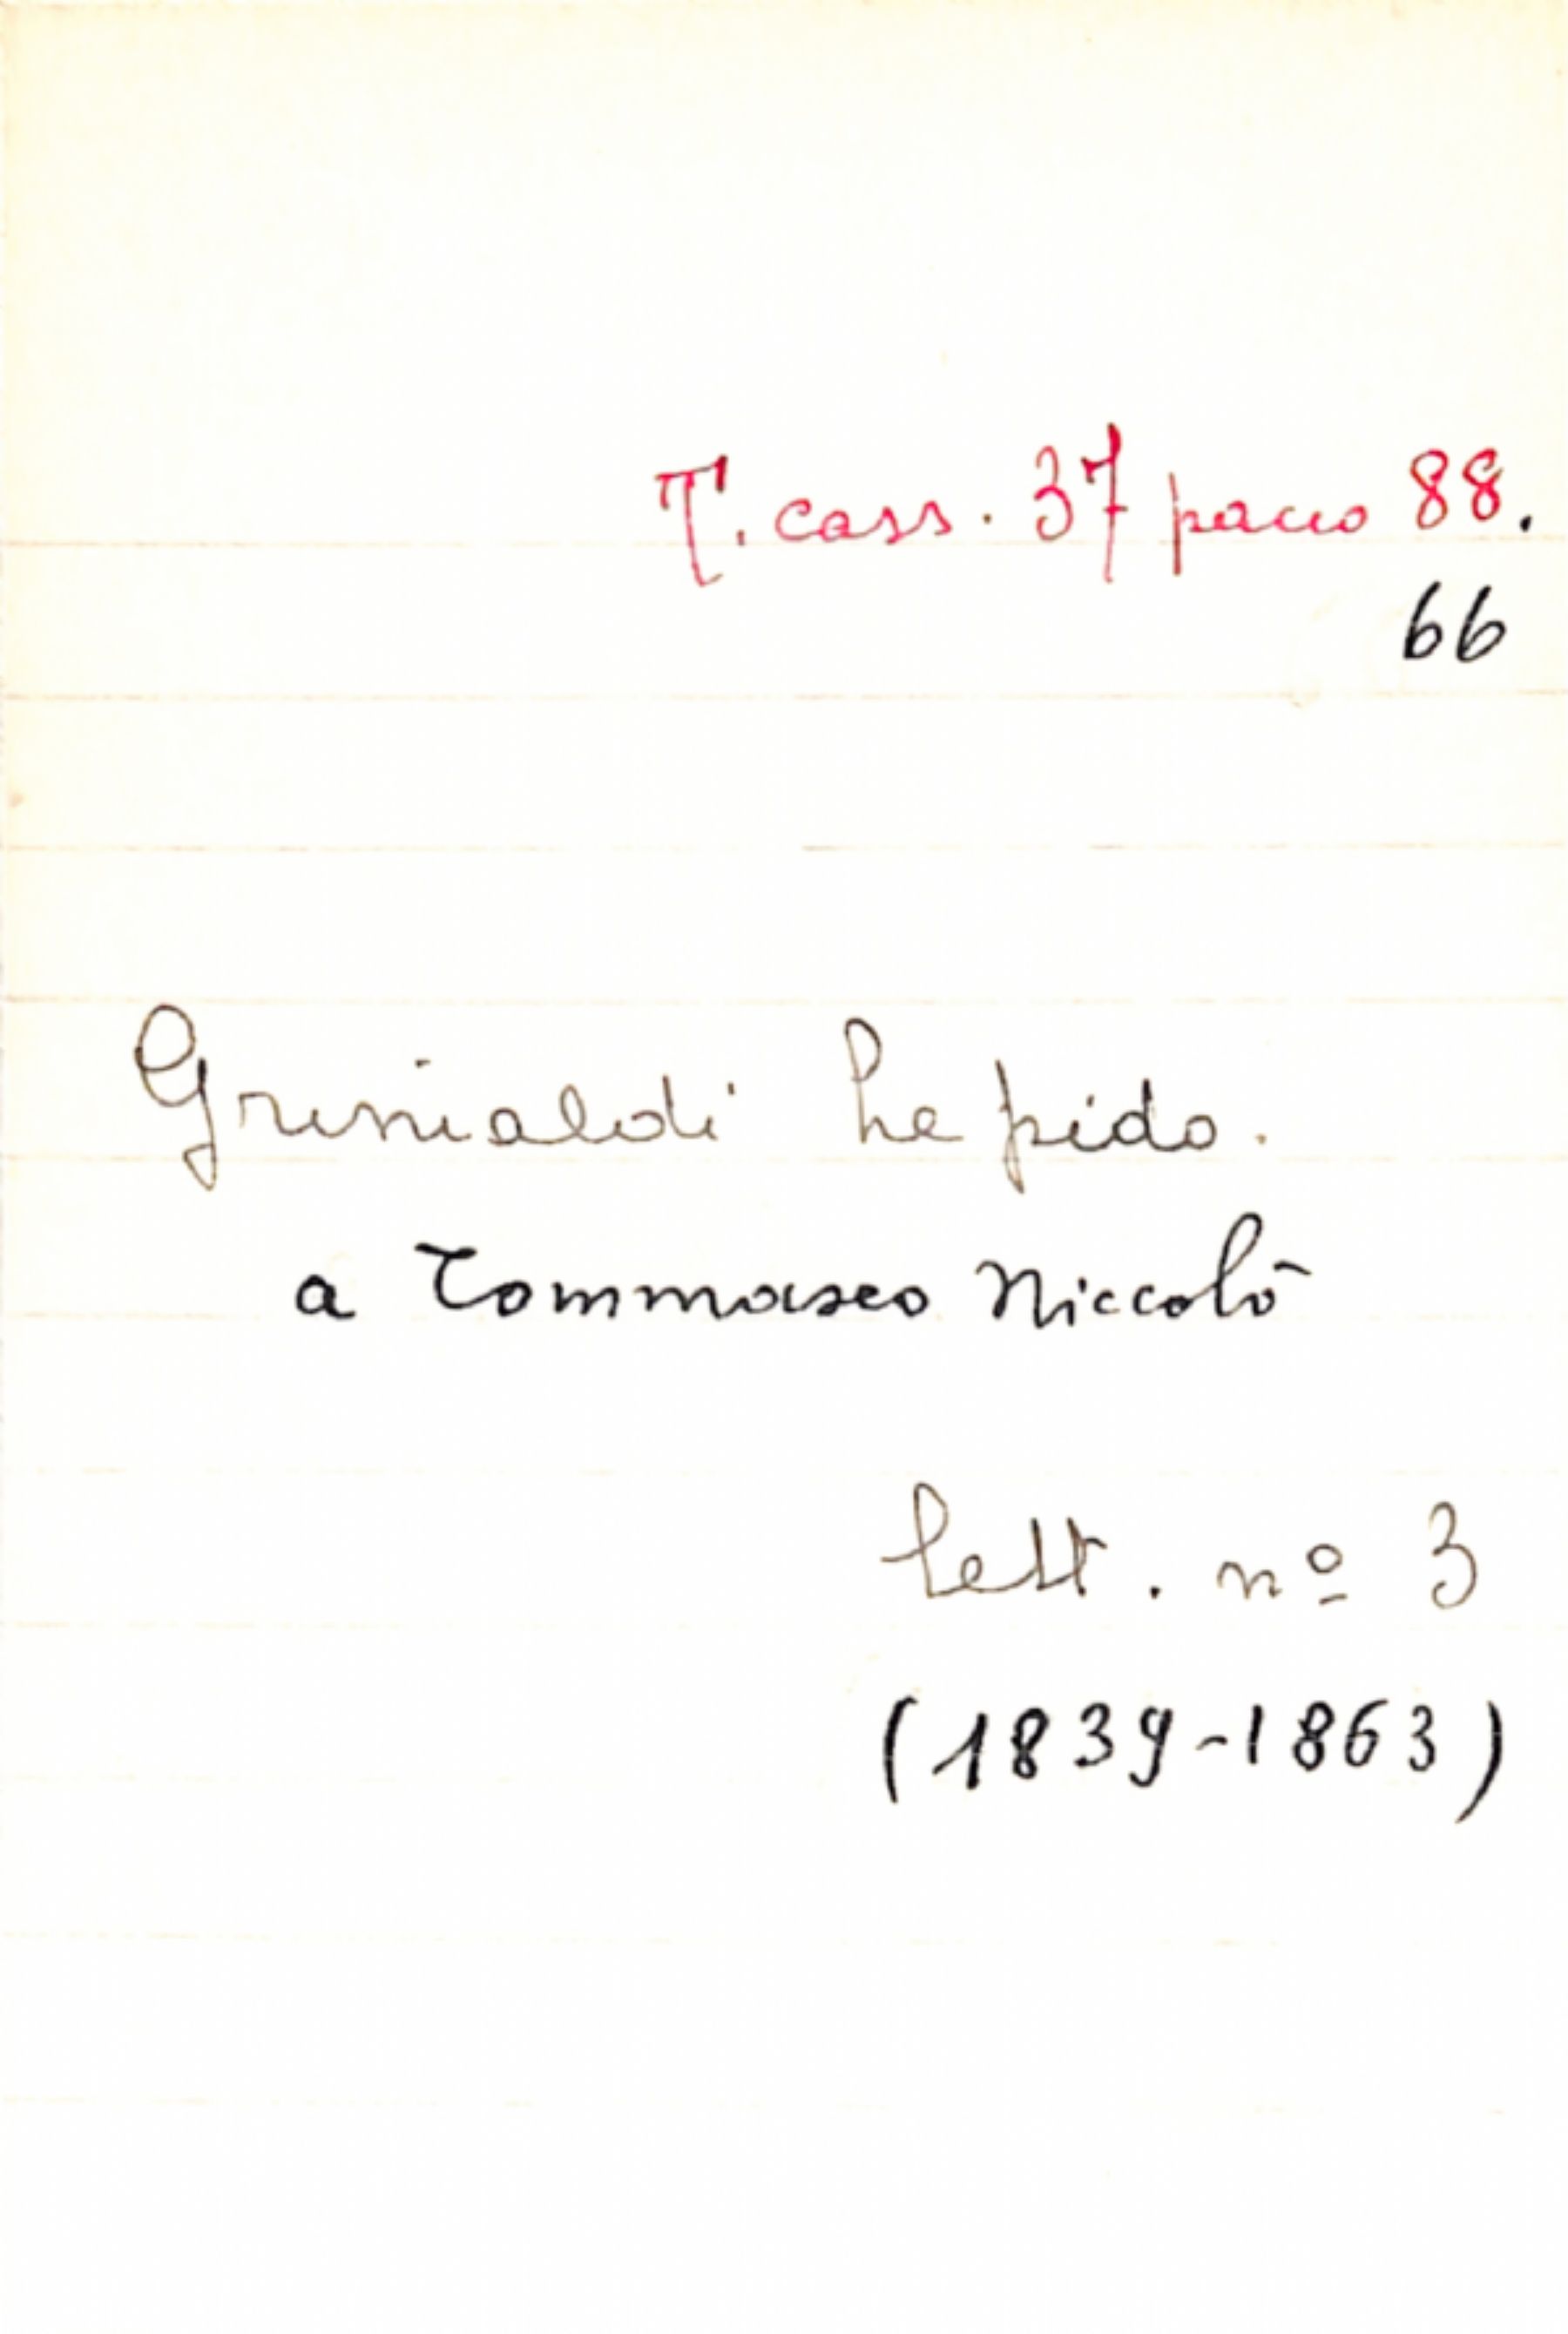 T. cass. 37 pacco 88.
66
Grimaldi Lepido.
a Tommaseo Niccolò
lett. nº 3
(1839-1863)